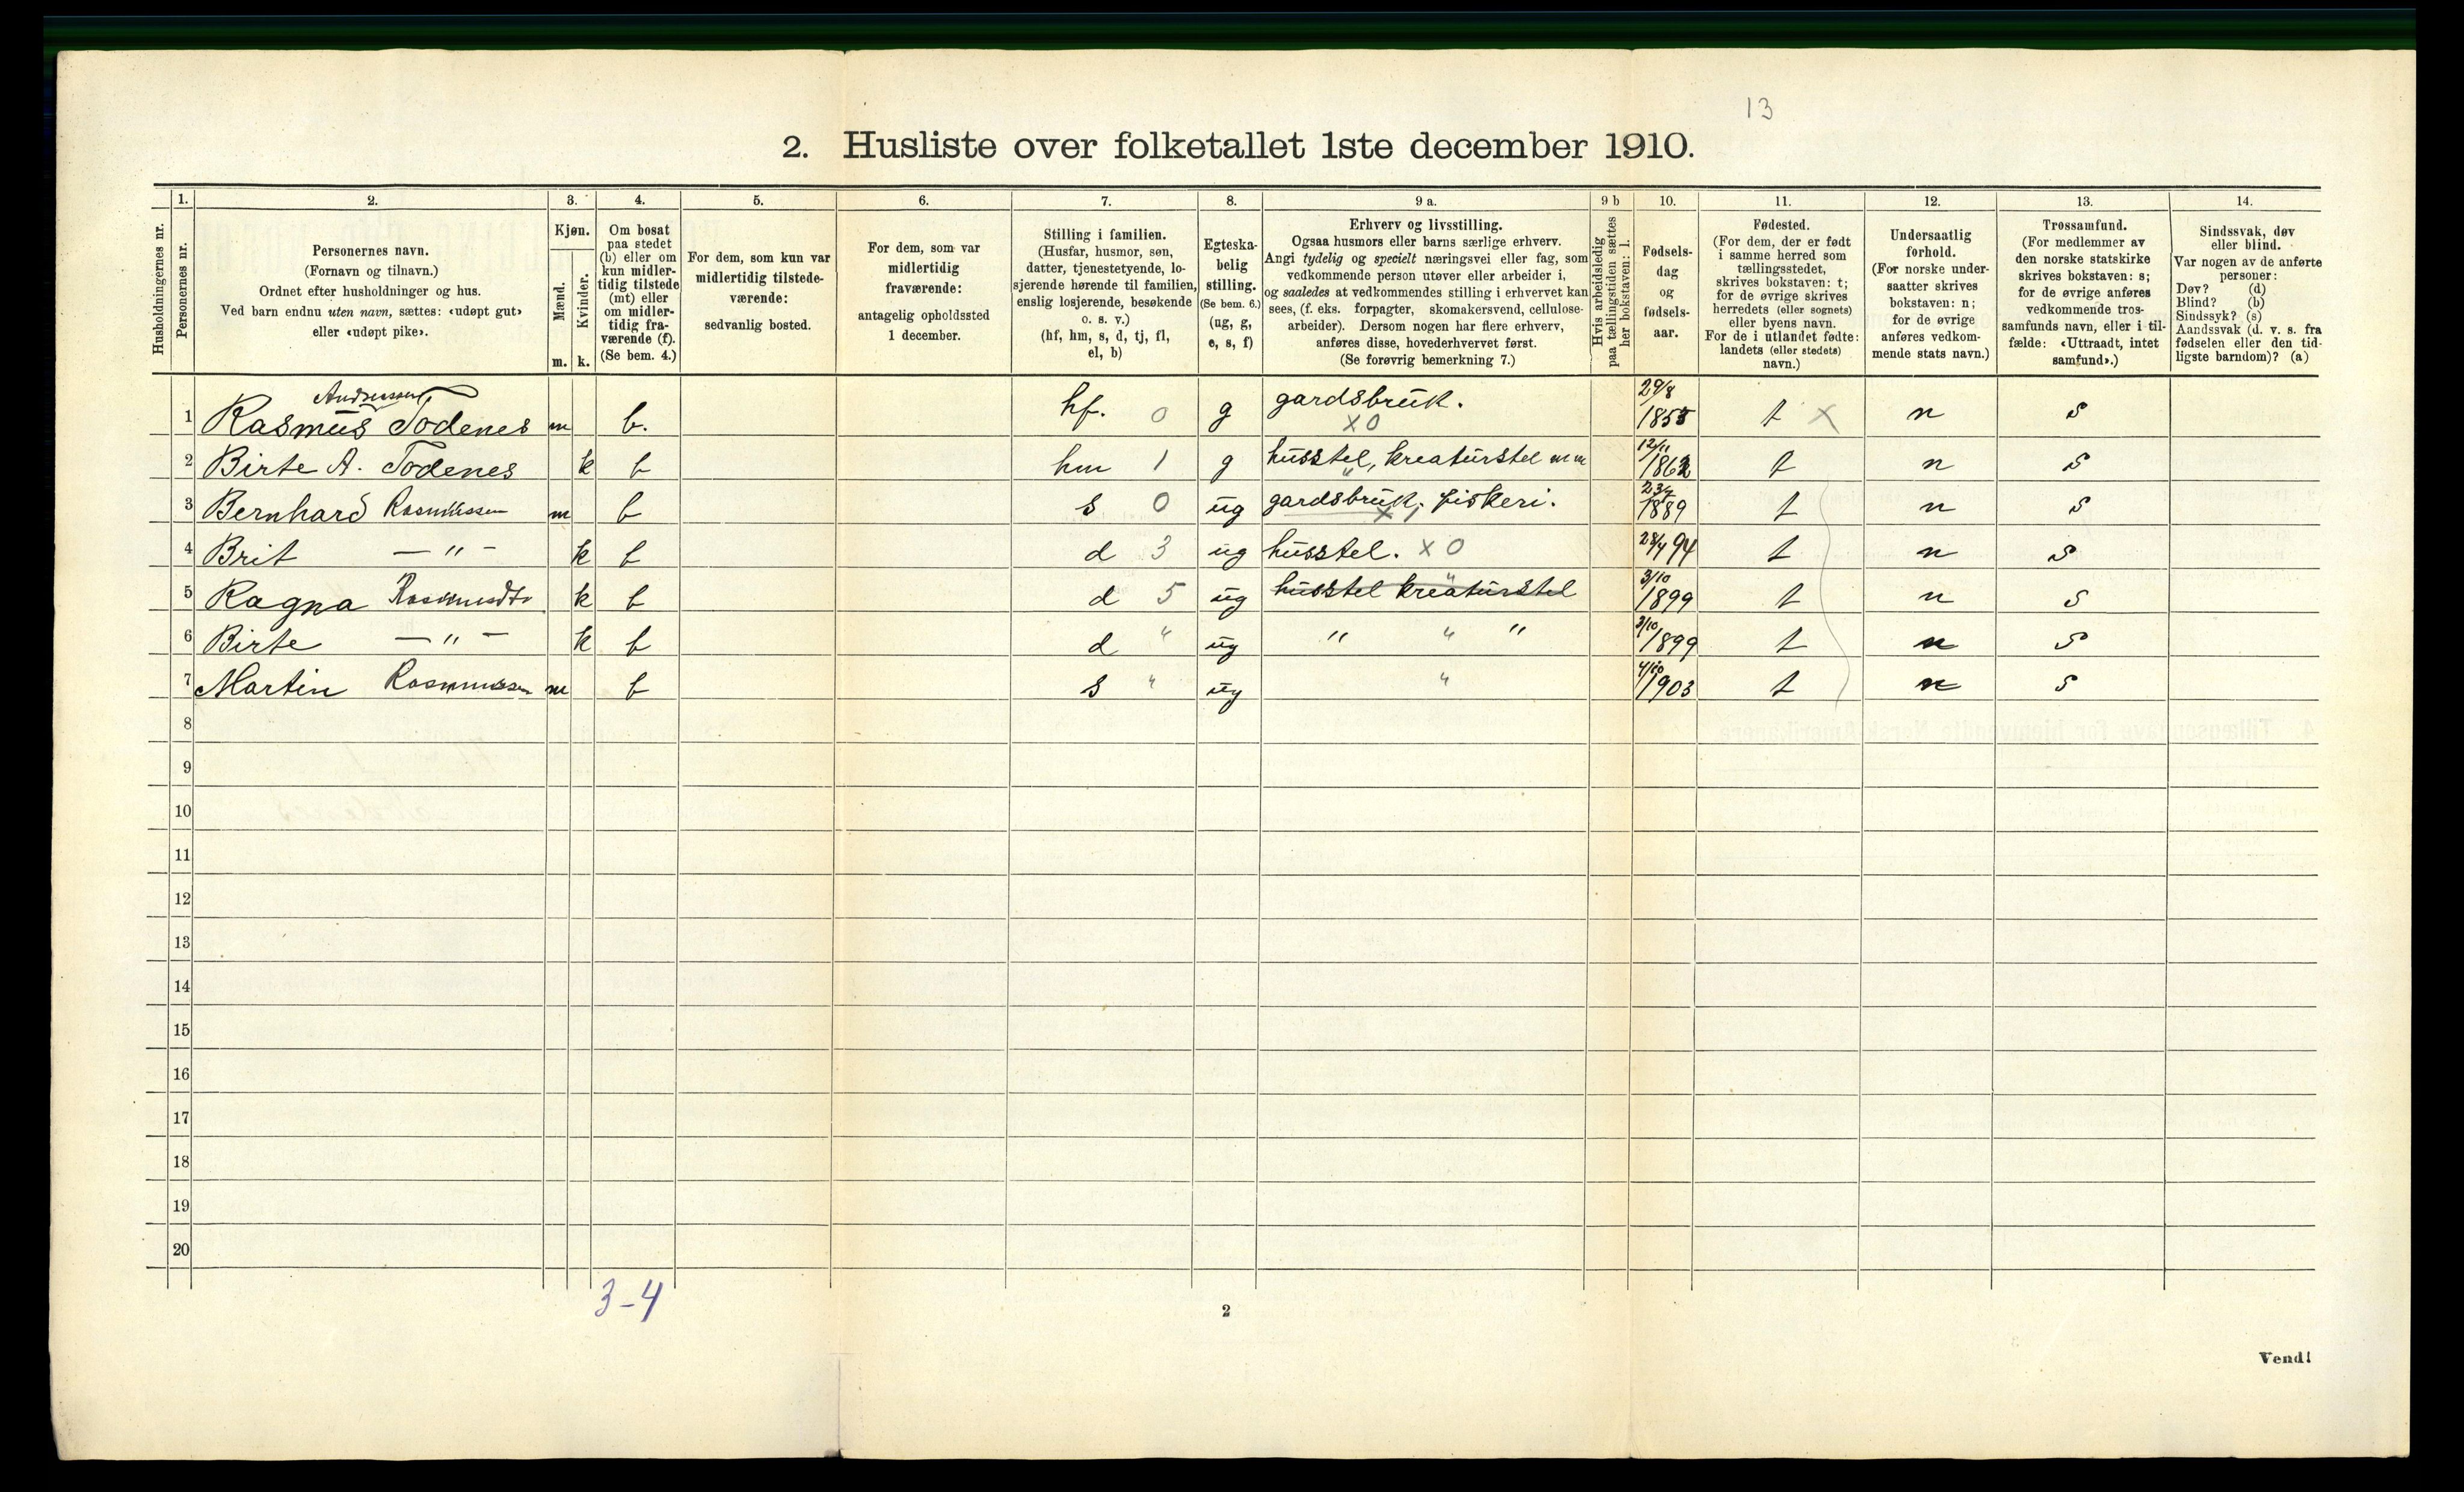 13
2. Husliste over folketallet 1ste december 1910.
Husholdningernes nr.
1.
Personernes nr.
2.
Personernes navn.
(Fornavn og tilnavn.)
Ordnet efter husholdninger og hus.
Ved barn endnu uten navn, sættes: «udøpt gut»
eller «udøpt pike».
3.
Kjøn.
Mænd.
Kvinder.
m. k.
4.
Om bosat
paa stedet
(b) eller om
kun midler-
tidig tilstede
(mt) eller
om midler-
tidig fra-
værende (f).
(Se bem. 4.)
5.
For dem, som kun var
midlertidig tilstede-
værende:
sedvanlig bosted.
6.
For dem, som var
midlertidig
fraværende:
antagelig opholdssted
1 december.
7.
Stilling i familien.
(Husfar, husmor, søn,
datter, tjenestetyende, lo-
sjerende hørende til familien,
enslig losjerende, besøkende
o. s. v.)
(hf, hm, s, d, tj, fl,
el, b)
8.
Egteska-
belig
stilling.
(Se bem. 6.)
(ug, g,
e, s, f)
9 a.
Erhverv og livsstilling.
Ogsaa husmors eller barns særlige erhverv.
Angi tydelig og specielt næringsvei eller fag, som
vedkommende person utøver eller arbeider i,
og saaledes at vedkommendes stilling i erhvervet kan
sees, (f. eks. forpagter, skomakersvend, cellulose-
arbeider). Dersom nogen har flere erhverv,
anføres disse, hovederhvervet først.
(Se forøvrig bemerkning 7.)
9 b
Hvis arbeidsledig
paa tællingstiden sættes
her bokstaven: l.
10.
Fødsels-
dag
og
fødsels-
aar.
11.
Fødested.
(For dem, der er født
i samme herred som
tællingsstedet,
skrives bokstaven: t;
for de øvrige skrives
herredets (eller sognets)
eller byens navn.
For de i utlandet fødte:
landets (eller stedets)
navn.)
12.
Undersaatlig
forhold.
(For norske under-
saatter skrives
bokstaven: n;
for de øvrige
anføres vedkom-
mende stats navn.)
13.
Trossamfund.
(For medlemmer av
den norske statskirke
skrives bokstaven: s;
for de øvrige anføres
vedkommende tros-
samfunds navn, eller i til-
fælde: «Uttraadt, intet
samfund».)
14.
Sindssvak, døv
eller blind.
Var nogen av de anførte
personer:
Døv? (d)
Blind? (b)
Sindssyk? (s)
Aandssvak (d. v. s. fra
fødselen eller den tid-
ligste barndom)? (a)
Andreassen
1 Rasmus Todenes m b. hf. 0 g gardsbruk. x0 29/8 1855 t x n s
2 Birte A. Todenes k b hm 1 g husstel, kreaturstel m m " 12/11 1862 t n s
3 Bernhard Rasmussen m b s 0 ug gardsbruk, fiskeri. x 23/7 1889 t n s
4 Brit — " — k b d 3 ug husstel. x0 28/4 94 t n s
5 Ragna Rasmusdtr k b d 5 ug husstel kreaturstel " 3/10 1899 t n s
6 Birte — " — k b d " ug " " " 3/10 1899 t n s
7 Martin Rasmussen m b s " ug " 4/10 1903 t n s
8
9
10
11
12
13
14
15
16
17
18
19
20
3-4
2
Vend!